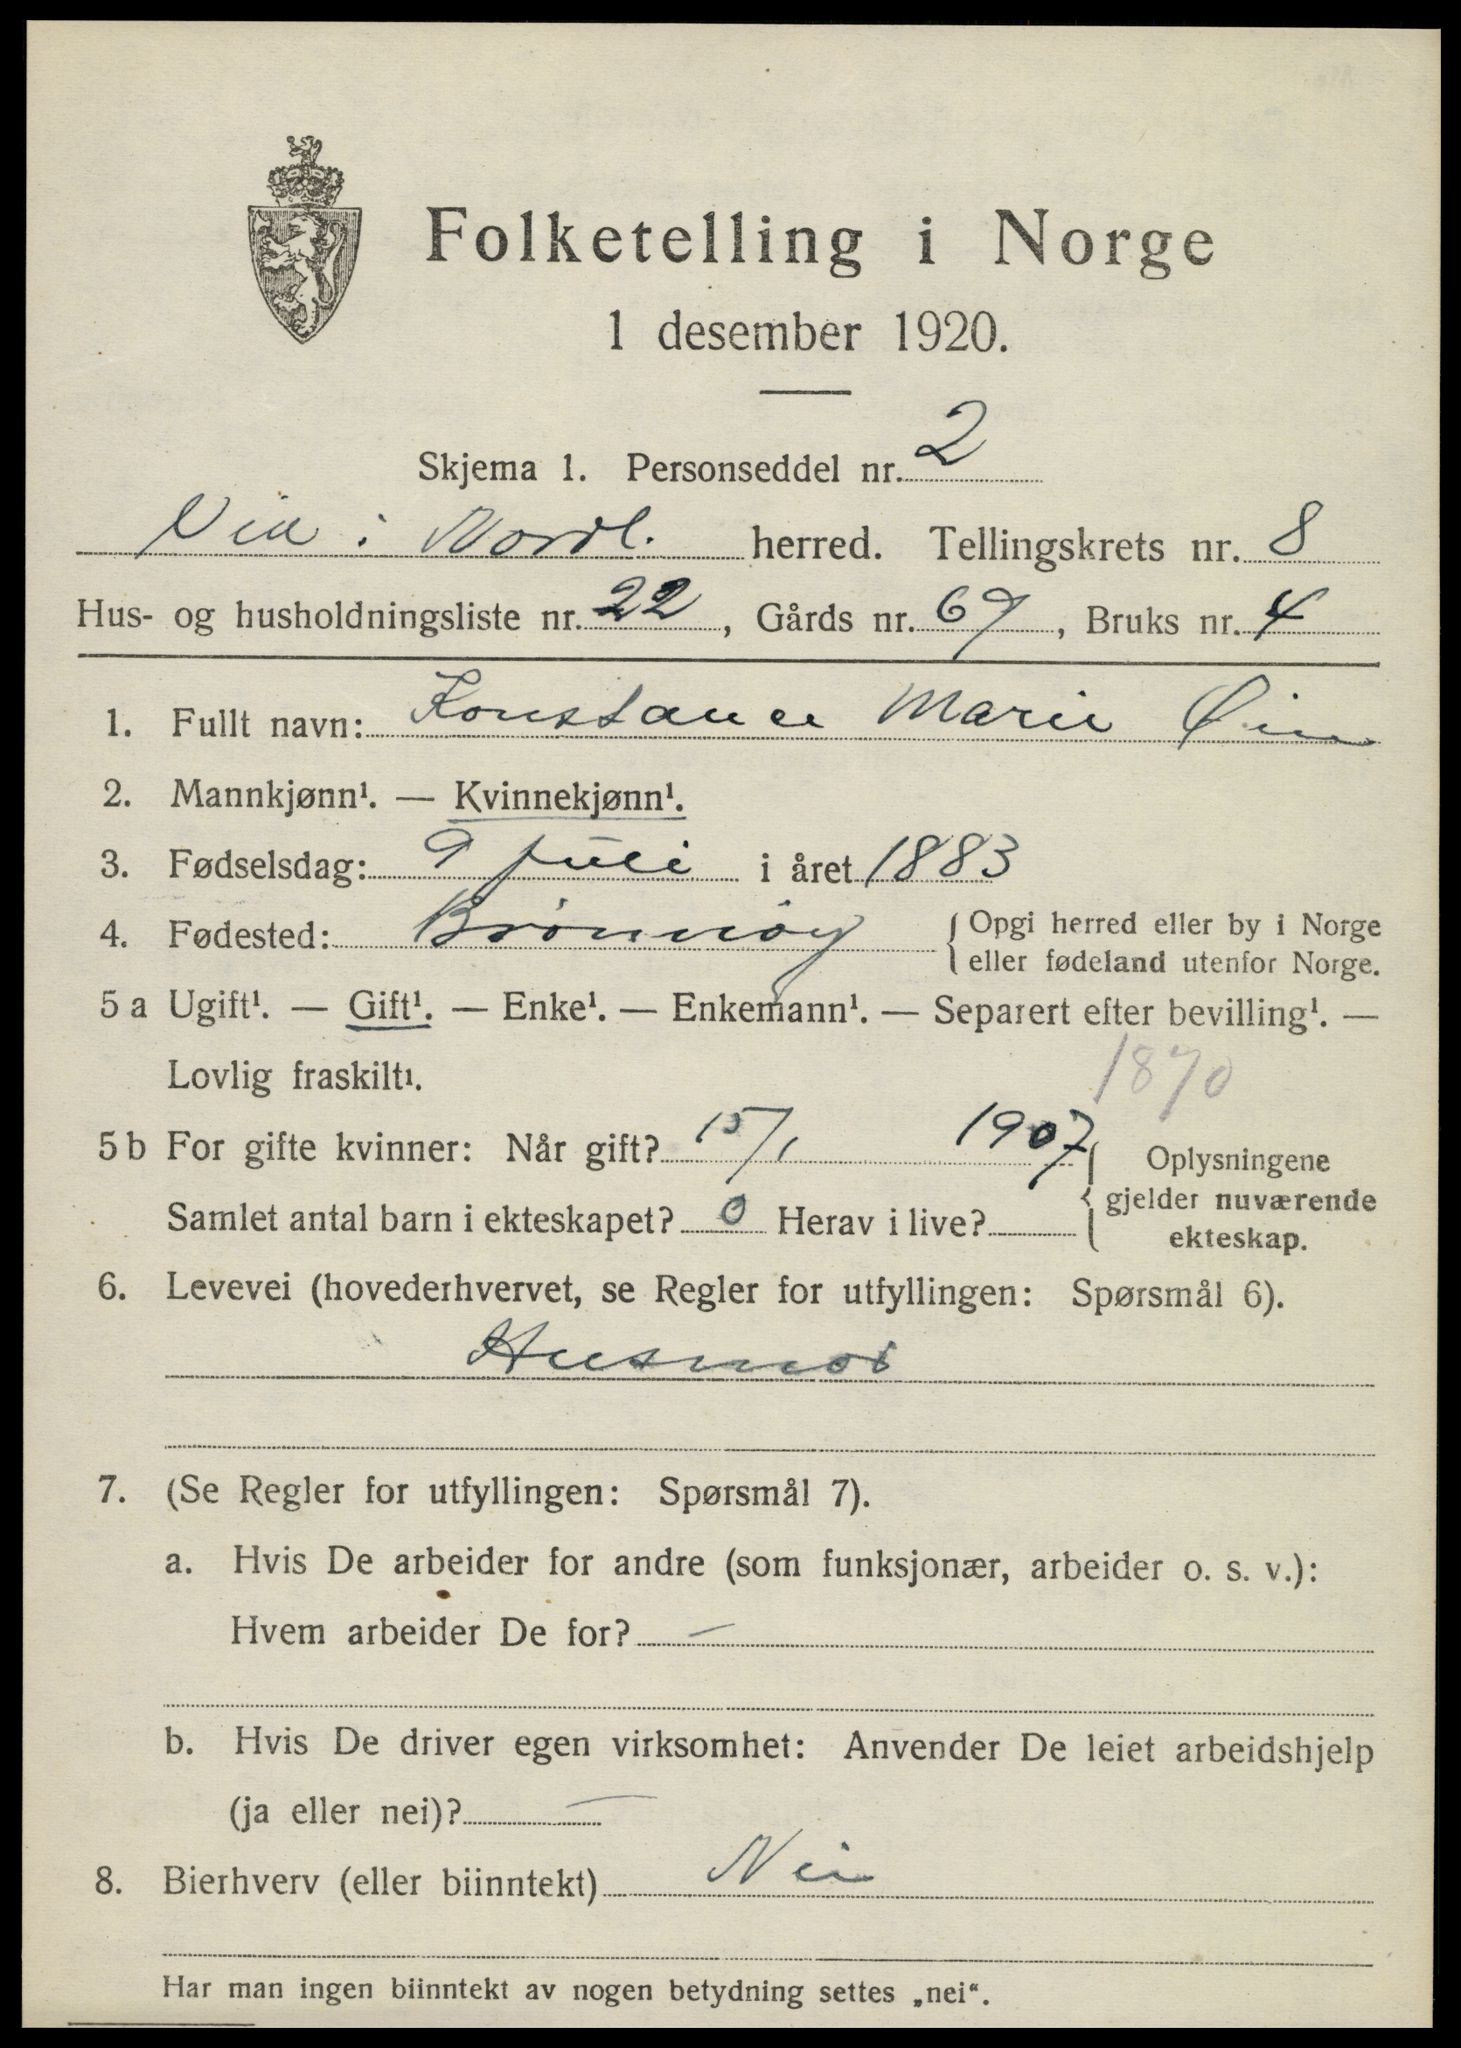 Folketelling i Norge
1 desember 1920.
Skjema 1. Personseddel nr. 2
Vik i Nordl. herred. Tellingskrets nr. 8
Hus- og husholdningsliste nr. 22, Gårds nr. 69, Bruks nr. 4
1. Fullt navn: Konstance Marie
2. Mannkjønn¹. — Kvinnekjønn¹.
3. Fødselsdag: 9 juli i året 1883
4. Fødested: Brønnøy { Opgi herred eller by i Norge
eller fødeland utenfor Norge.
5 a Ugift¹. — Gift¹. — Enke¹. — Enkemann¹. — Separert efter bevilling¹. —
Lovlig fraskilt¹.
1870
5 b For gifte kvinner: Når gift? 15/1 1907 { Oplysningene
Samlet antal barn i ekteskapet? 0 Herav i live? gjelder nuværende
ekteskap.
6. Levevei (hovederhvervet, se Regler for utfyllingen: Spørsmål 6).
Husmor
7. (Se Regler for utfyllingen: Spørsmål 7).
a. Hvis De arbeider for andre (som funksjonær, arbeider o. s. v.):
Hvem arbeider De for? —
b. Hvis De driver egen virksomhet: Anvender De leiet arbeidshjelp
(ja eller nei)? —
8. Bierhverv (eller biinntekt) Nei
Har man ingen biinntekt av nogen betydning settes „nei“.